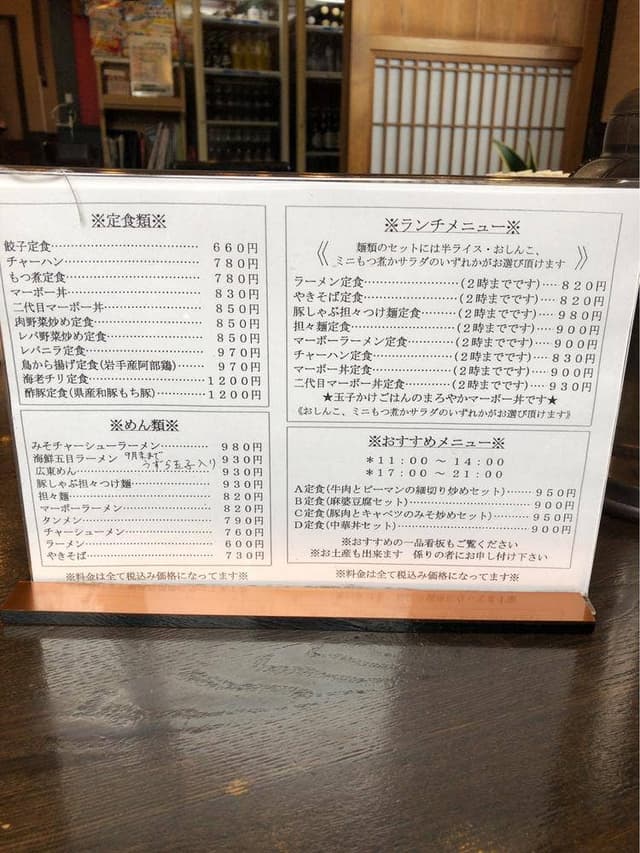 ※定食類※
餃子定食 660円
チャーハン 780円
もつ煮定食 780円
マーボー丼 830円
二代目マーボー丼 850円
肉野菜炒め定食 850円
レバ野菜炒め定食 850円
レバニラ定食 970円
鳥から揚げ定食(岩手産阿部鶏) 970円
海老チリ定食 1200円
酢豚定食(県産和豚もち豚) 1200円
※めん類※
みそチャーシューラーメン 980円
海鮮五目ラーメン 9月末まで うずら玉子入り 930円
広東めん 930円
豚しゃぶ担々つけ麺 930円
担々麺 820円
マーボーラーメン 820円
タンメン 790円
チャーシューメン 760円
ラーメン 600円
やきそば 730円
※料金は全て税込み価格になってます※
※ランチメニュー※
《 麺類のセットには半ライス・おしんこ、
ミニもつ煮かサラダのいずれかがお選び頂けます 》
ラーメン定食 (2時までです) 820円
やきそば定食 (2時までです) 820円
豚しゃぶ担々つけ麺定食 (2時までです) 980円
担々麺定食 (2時までです) 900円
マーボーラーメン定食 (2時までです) 900円
チャーハン定食 (2時までです) 830円
マーボー丼定食 (2時までです) 900円
二代目マーボー丼定食 (2時までです) 930円
★玉子かけごはんのまろやかマーボー丼です★
《おしんこ、ミニもつ煮かサラダのいずれかがお選び頂けます》
※おすすめメニュー※
*11:00 ～ 14:00
*17:00 ～ 21:00
A定食(牛肉とピーマンの細切り炒めセット) 950円
B定食(麻婆豆腐セット) 900円
C定食(豚肉とキャベツのみそ炒めセット) 950円
D定食(中華丼セット) 900円
※おすすめの一品看板もご覧ください
※お土産も出来ます 係りの者にお申し付け下さい
※料金は全て税込み価格になってます※